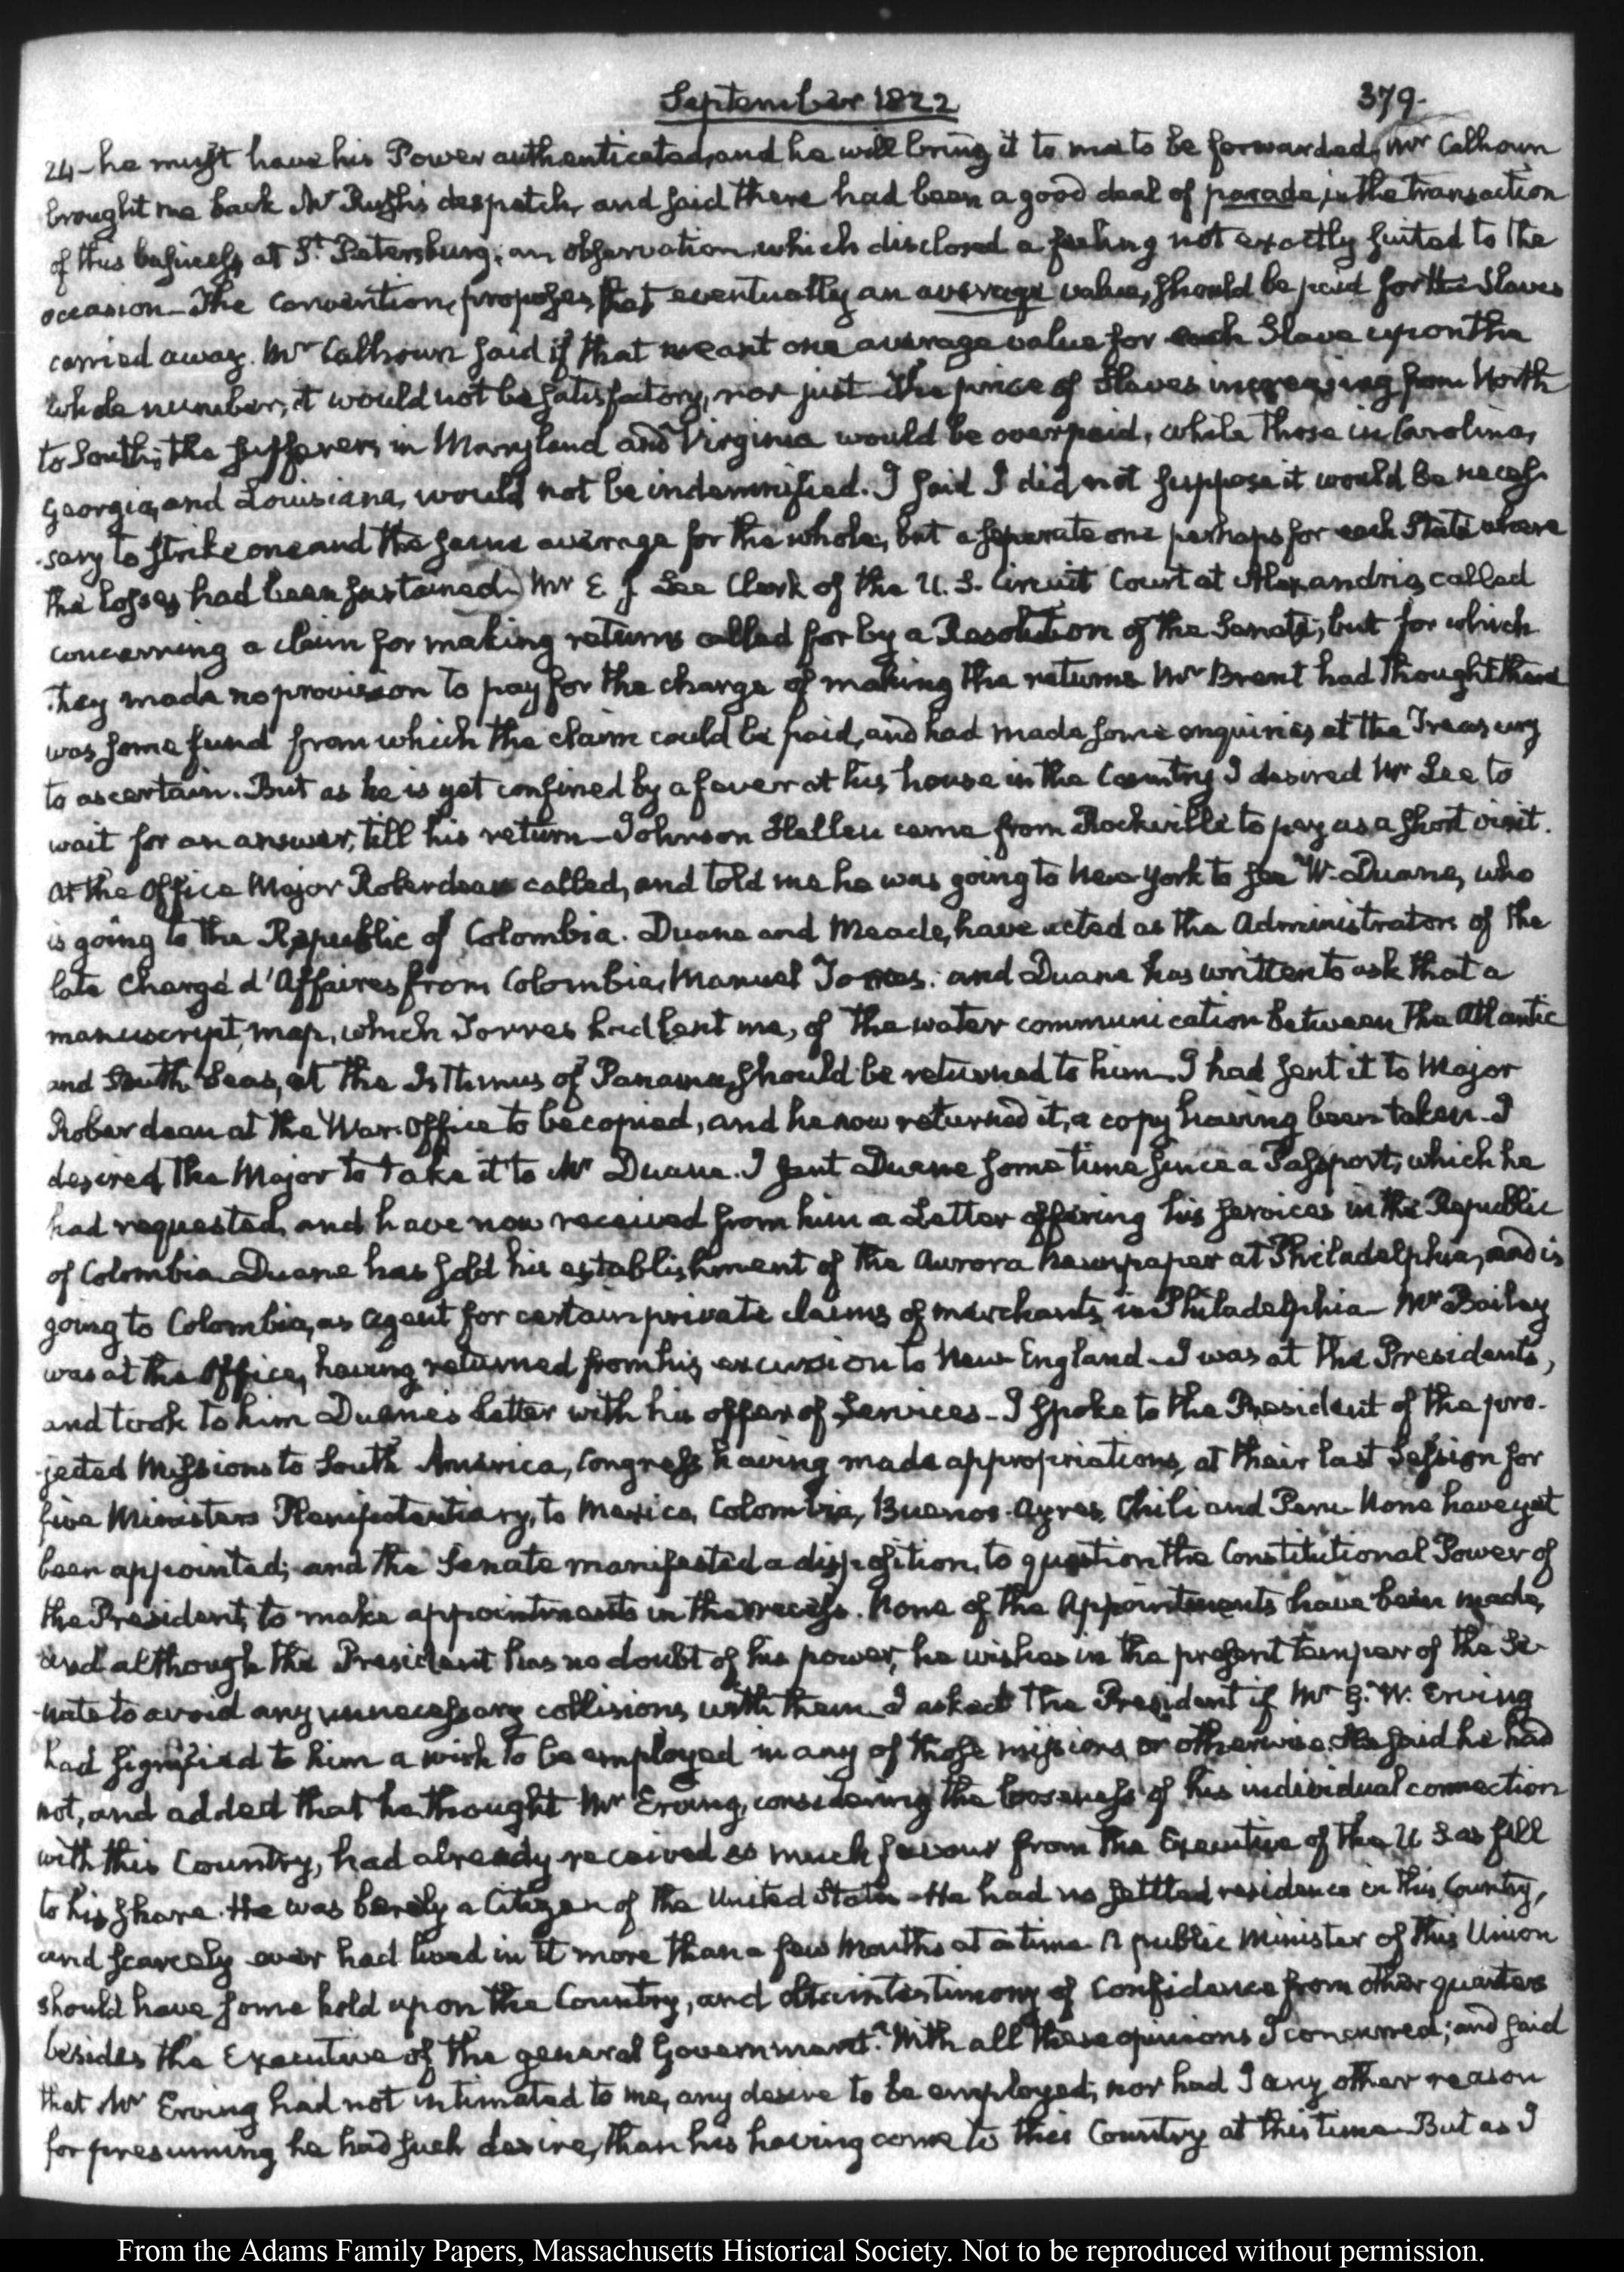 September 1822
379.
24 - he must have his Power authenticated, and he will bring it to me to be forwarded, Mr Calhoun
brought me back Mr Rush's despatch, and said there had been a good deal of parade, in the transaction
of this business at St. Petersburg; an observation which disclosed a feeling not exactly suited to the
occasion - The Convention, proposes, that eventually an average value, should be paid for the Slaves
carried away. Mr Calhoun said if that meant one average value for each Slave upon the
whole number, it would not be satisfactory, nor just - The price of Slaves increasing from North
to South; the sufferers in Maryland and Virginia would be overpaid, while those in Carolina,
Georgia, and Louisiana, would not be indemnified. I said I did not suppose it would be neces-
-sary to strike one and the same average for the whole, but a separate one perhaps for each State where
the losses had been sustained. Mr E. J. Lee Clerk of the U.S. Circuit Court at Alexandria, called
concerning a claim for making returns called for by a Resolution of the Senate, but for which
they made no provision to pay for the charge of making the returns Mr Brent had thought there
was some fund from which the claim could be paid, and had made some enquiries at the Treasury
to ascertain. But as he is yet confined by a fever at his house in the Country I desired Mr Lee to
wait for an answer, till his return - Johnson Hellen came from Rockville to pay us a short visit.
At the Office Major Roberdeau called, and told me he was going to New York to see W. Duane, who
is going to the Republic of Colombia. Duane and Meade, have acted as the Administrators of the
late Chargé d'Affaires from Colombia, Manuel Torres; and Duane has written to ask that a
manuscript, map, which Torres had lent me, of the water communication between the Atlantic
and South Seas, at the Isthmus of Panama, should be returned to him. I had sent it to Major
Roberdeau at the War Office to be copied, and he now returned it, a copy having been taken. I
desired the Major to take it to Mr Duane. I sent Duane some time since a Passport, which he
had requested, and have now received from him a Letter offering his services in the Republic
of Colombia. Duane has sold his establishment of the Aurora newspaper at Philadelphia, and is
going to Colombia, as Agent for certain private claims of merchants in Philadelphia - Mr Bailey
was at the Office, having returned from his excursion to New England - I was at the Presidents,
and took to him Duane's Letter with his offer of Services - I spoke to the President of the pro-
-jected Missions to South America, Congress having made appropriations, at their last Session for
five Ministers Plenipotentiary, to Mexico, Colombia, Buenos-Ayres, Chili and Peru - None have yet
been appointed; and the Senate manifested a disposition, to question the Constitutional Power of
the President, to make appointments in the recess. None of the Appointments have been made,
and although the President has no doubt of his power, he wishes in the present temper of the Se-
-nate to avoid any unnecessary collisions with them - I asked the President if Mr G. W. Erving
had signified to him a wish to be employed in any of those missions, or otherwise. He said he had
not, and added that he thought Mr Erving, considering the looseness of his individual connection
with this Country, had already received as much favour from the Executive of the U S as fell
to his share. He was barely a Citizen of the United States - He had no settled residence in this Country,
and scarcely ever had lived in it more than a few Months at a time - A public Minister of this Union
should have some hold upon the Country, and obtain testimony of Confidence from other quarters
besides the Executive of the general Government. With all these opinions I concurred; and said
that Mr Erving had not intimated to me, any desire to be employed; nor had I any other reason
for presuming he had such desire, than his having come to this Country at this time - But as I
From the Adams Family Papers, Massachusetts Historical Society. Not to be reproduced without permission.